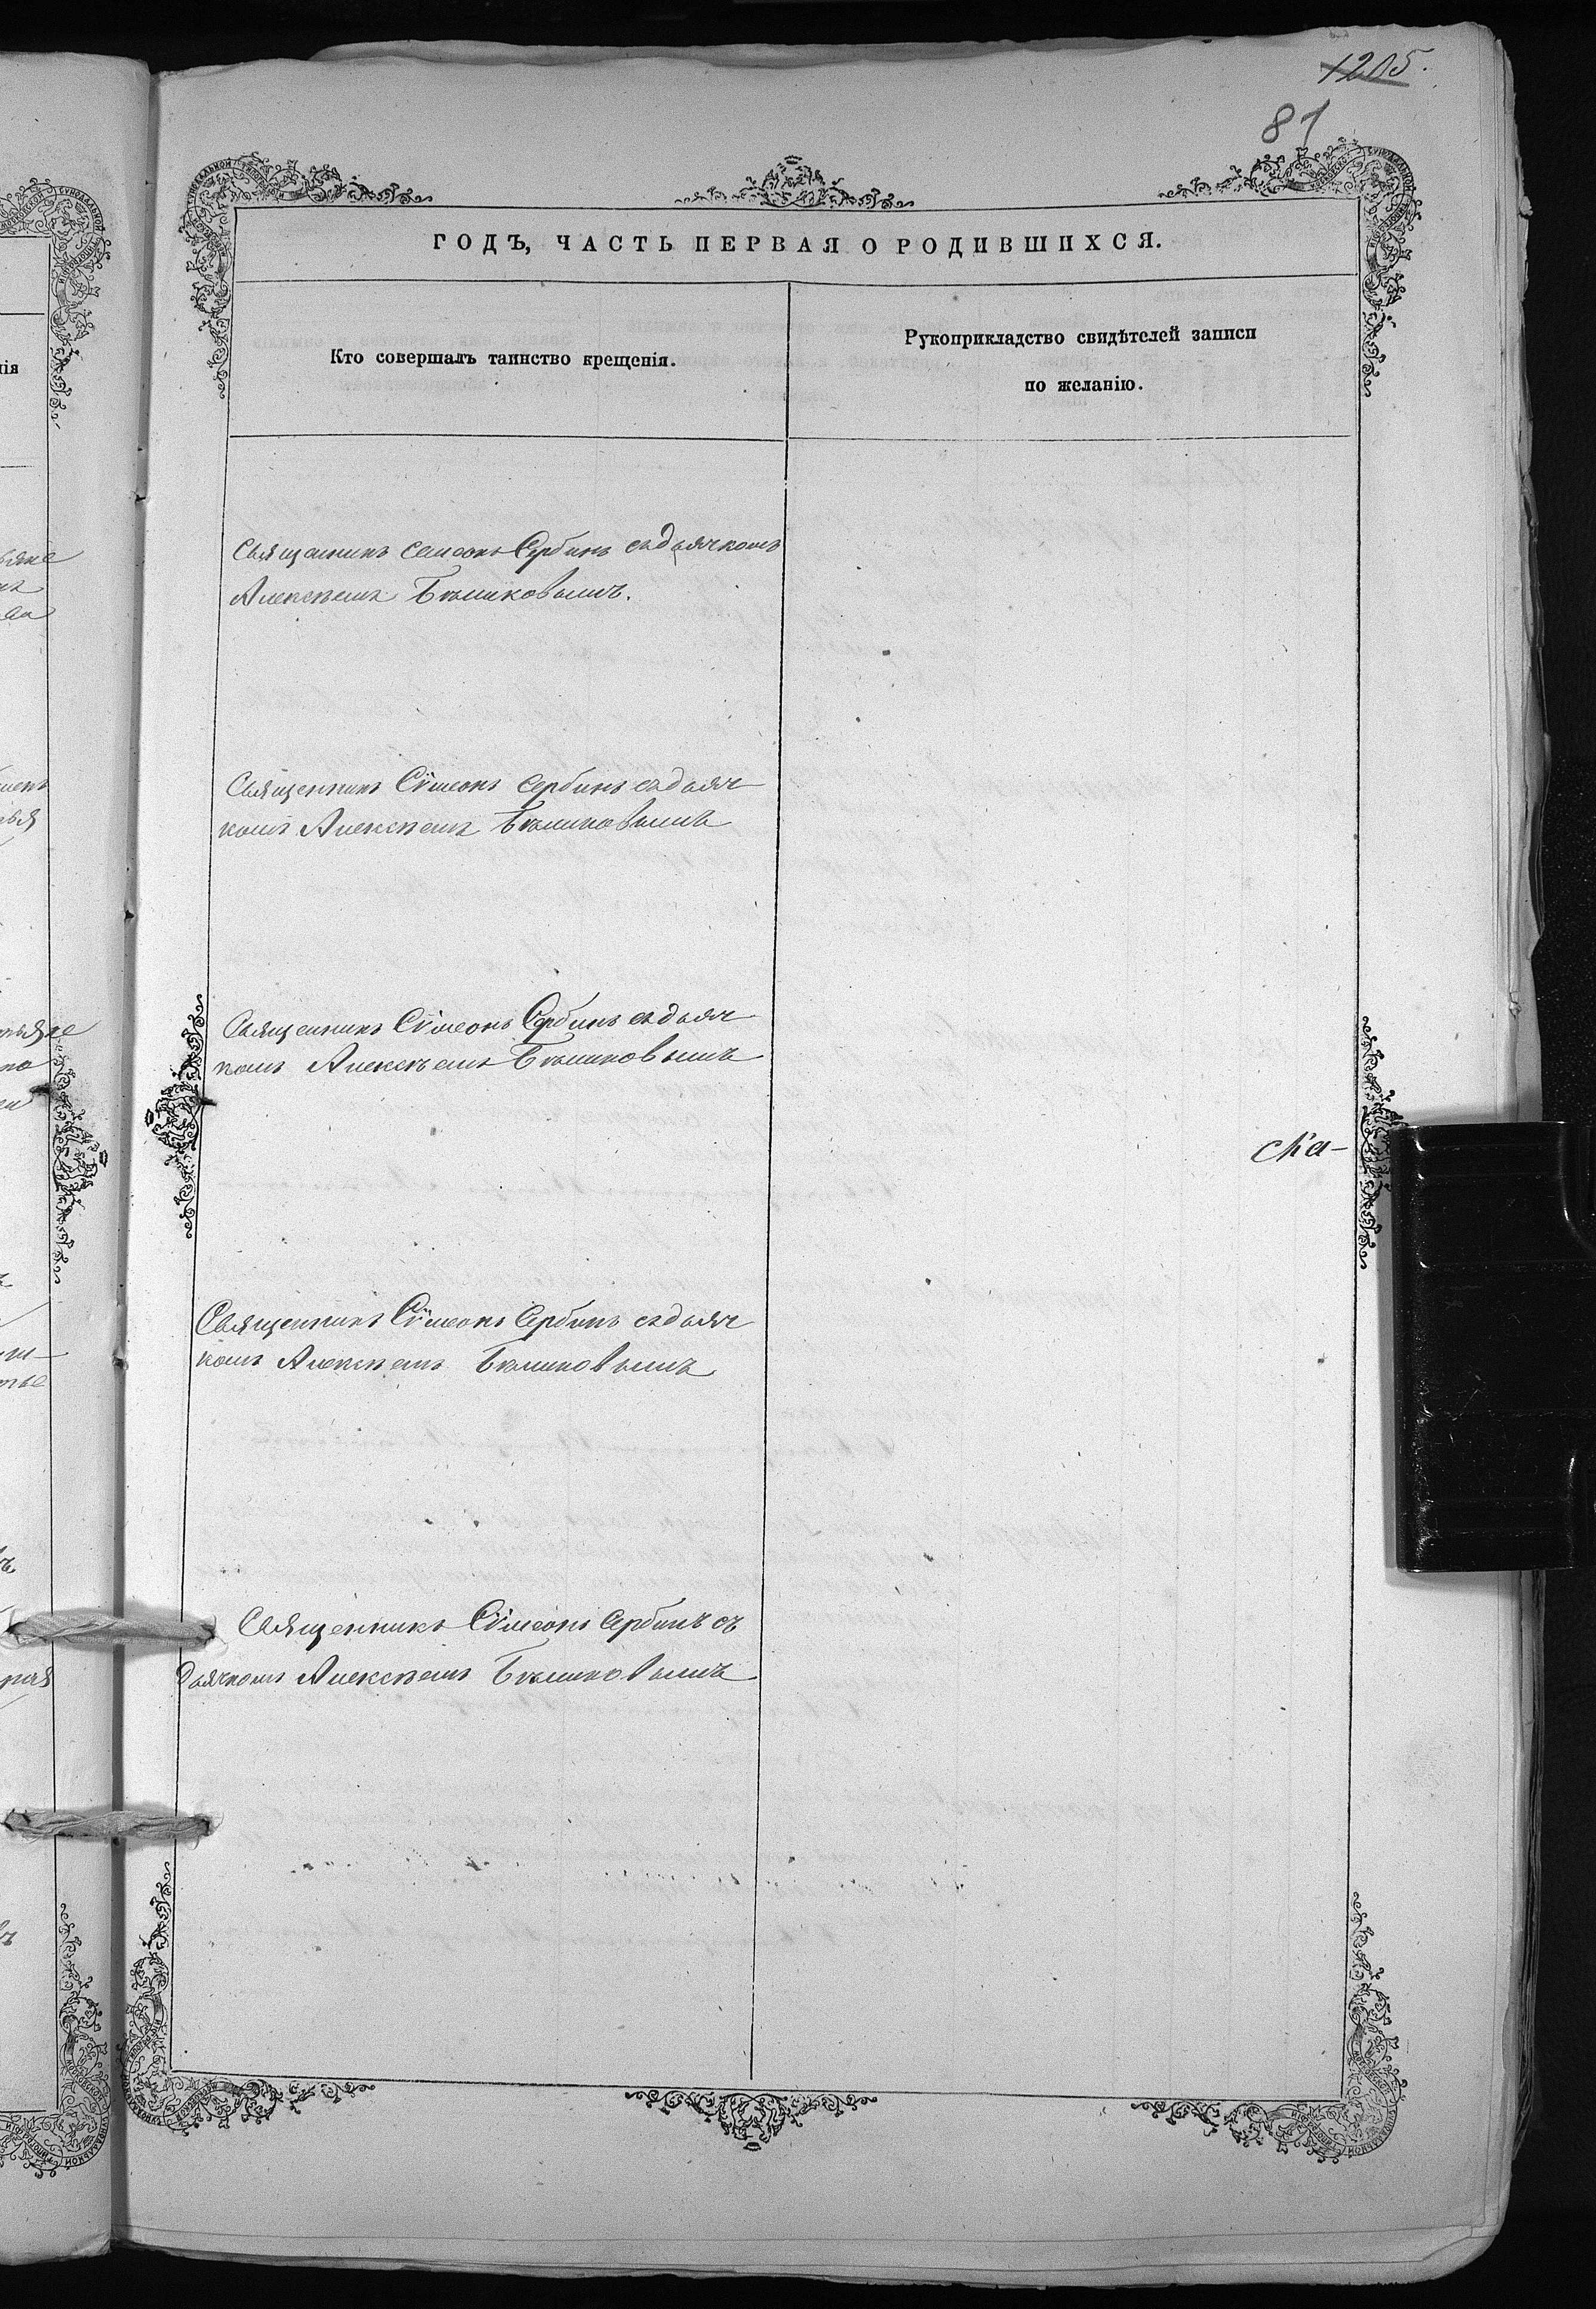 1205.
81
ГОДЪ, ЧАСТЬ ПЕРВАЯ О РОДИВШИХСЯ.
Кто совершалъ таинство крещенія.
Рукоприкладство свидѣтелей записи
по желанію.
Священникъ Семеонъ Сербинъ съ дьячкомъ
Алексѣемъ Бѣликовымъ.
Священникъ Сѵмеонъ Сербинъ съ дьяч
комъ Алексѣемъ Бѣликовымъ
Священникъ Сѵмеонъ Сербинъ съ дьяч
комъ Алексѣемъ Бѣликовымъ
Священникъ Сѵмеонъ Сербинъ съ дьяч
комъ Алексѣемъ Бѣликовымъ
Священникъ Сѵмеонъ Сербинъ съ
дьячкомъ Алексѣемъ Бѣликовымъ